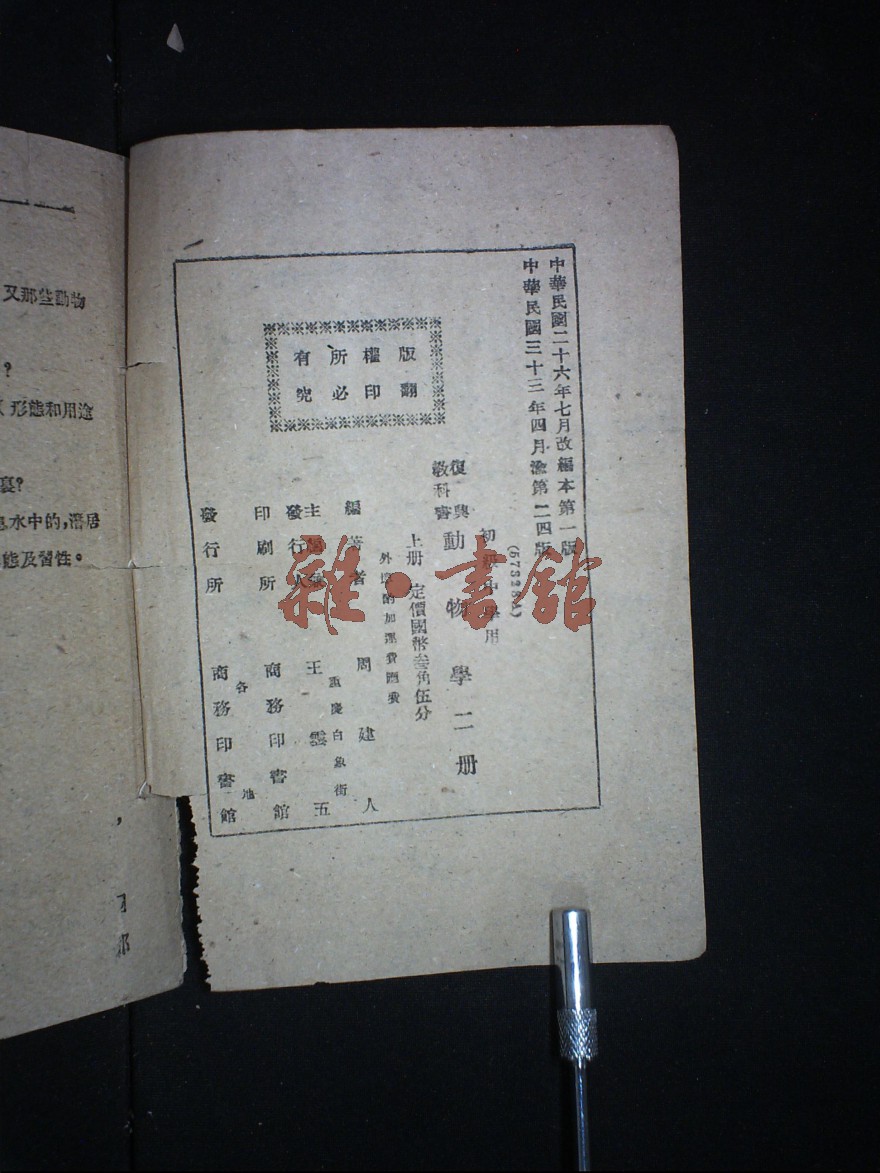 中華民國二十六年七月改編本第一版
中華民國三十三年四月渝第二四版
(57328A)
初級中學用
復興
教科書
動物學二册
上册 定價國幣叁角伍分
外埠酌加運費匯費
版權所有
翻印必究
編著者 周建人
重慶白象街
主編兼
發行人
王雲五
印刷所 商務印書館
各地
發行所 商務印書館
雜·書館
又那些動物
?
形態和用途
裏?
水中的,潛居
態及習性。
,
那